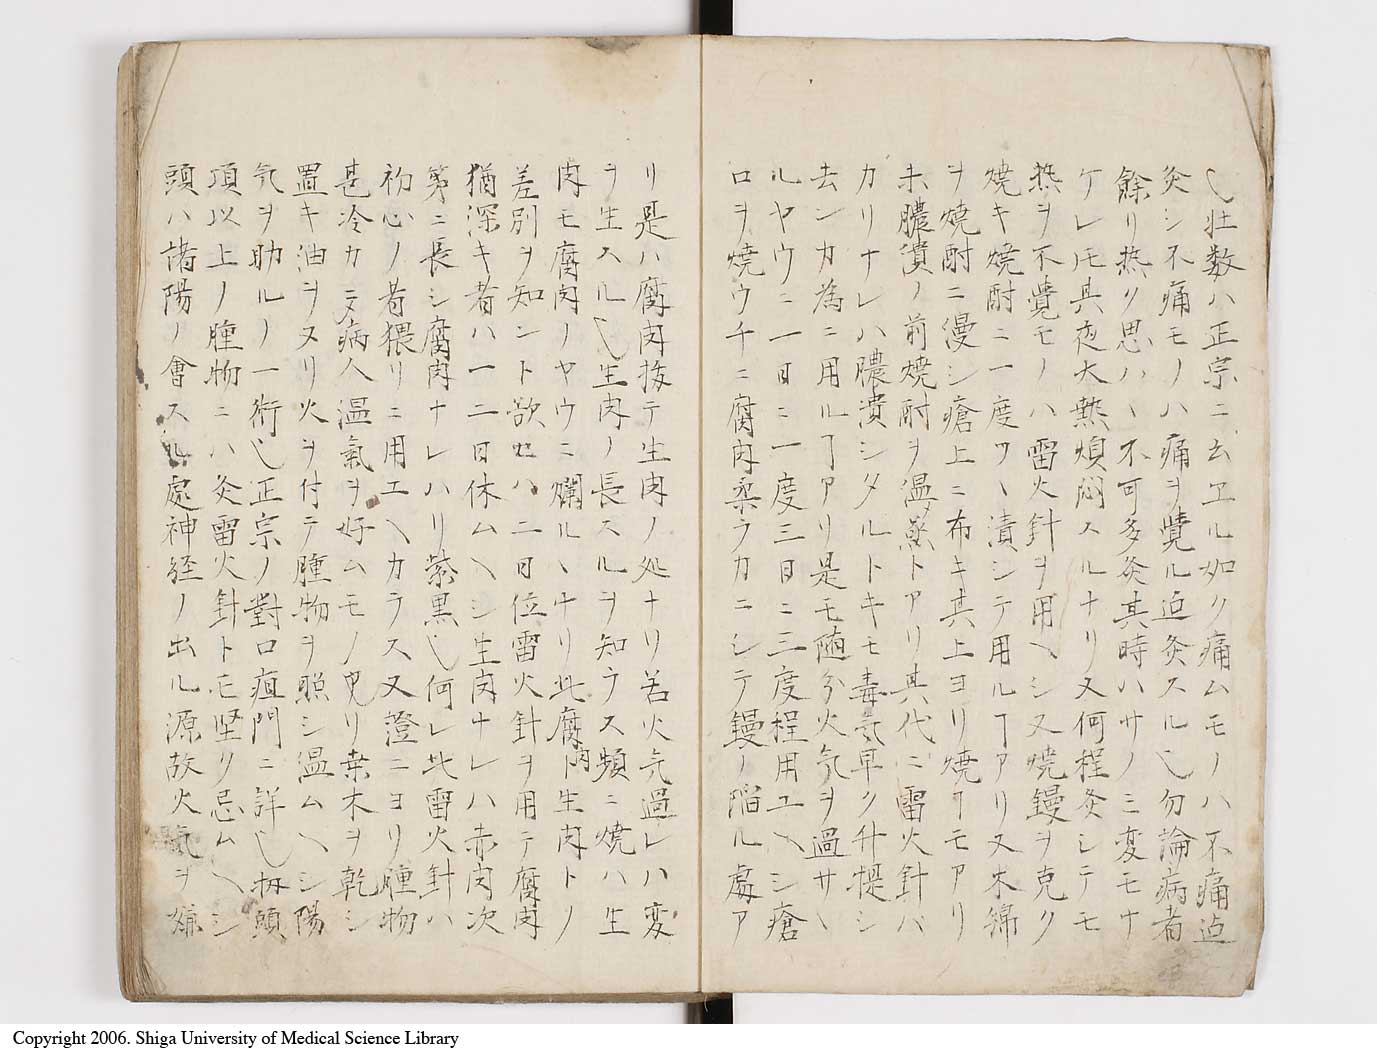 也壮数ハ正宗ニ云ヱル如ク痛ムモノハ不痛迠
灸シ不痛モノハ痛ヲ覺ル迠灸スル也勿論病者
餘リ热ク思ハヽ不可多灸其時ハサノミ変モナ
ケレ𪜈其夜大熱煩悶スルナリ又何程灸シテモ
热ヲ不覺モノハ雷火針ヲ用ヘシ又焼鏝ヲ克ク
焼キ焼酎ニ一度ツヽ漬シテ用ルヿアリ又木綿
ヲ焼酎ニ漫シ瘡上ニ布キ其上ヨリ焼クモアリ
未膿潰ノ前焼酎ヲ温蒸トアリ其代ニ雷火針バ
カリナレハ膿潰シタルトキモ毒氣早ク升提シ
去ンカ為ニ用ルヿアリ是モ随分火氣ヲ過サヽ
ルヤウニ一日ニ一度三日ニ三度程用エヘシ瘡
口ヲ焼ウチニ腐肉柔ラカニシテ鏝ノ陷ル處ア
リ是ハ腐肉抜テ生肉ノ処ナリ若火氣過レハ変
ヲ生スル也生肉ノ長スルヲ知ラス頻ニ焼ハ生
肉モ腐肉ノヤウニ爛ルヽナリ此腐肉生肉トノ
差別ヲ知ント欲セハ二日位雷火針ヲ用テ腐肉
猶深キ者ハ一二日休ムヘシ生肉ナレハ赤肉次
第ニ長シ腐肉ナレハリ紫黒也何レ此雷火針ハ
初心ノ者猥リニ用エヘカラス又證ニヨリ腫物
甚冷カニ又病人温氣ヲ好ムモノ皃リ桒木ヲ乾シ
置キ油ヲヌリ火ヲ付テ腫物ヲ照シ温ムヘシ陽
气ヲ助ルノ一術也正宗ノ對口疽門ニ詳也扨頭
項以上ノ腫物ニハ灸雷火針トモ堅ク忌ムヘシ
頭ハ諸陽ノ會スル處神経ノ出ル源故火氣ヲ嫌
Copyright 2006. Shiga University of Medical Science Library